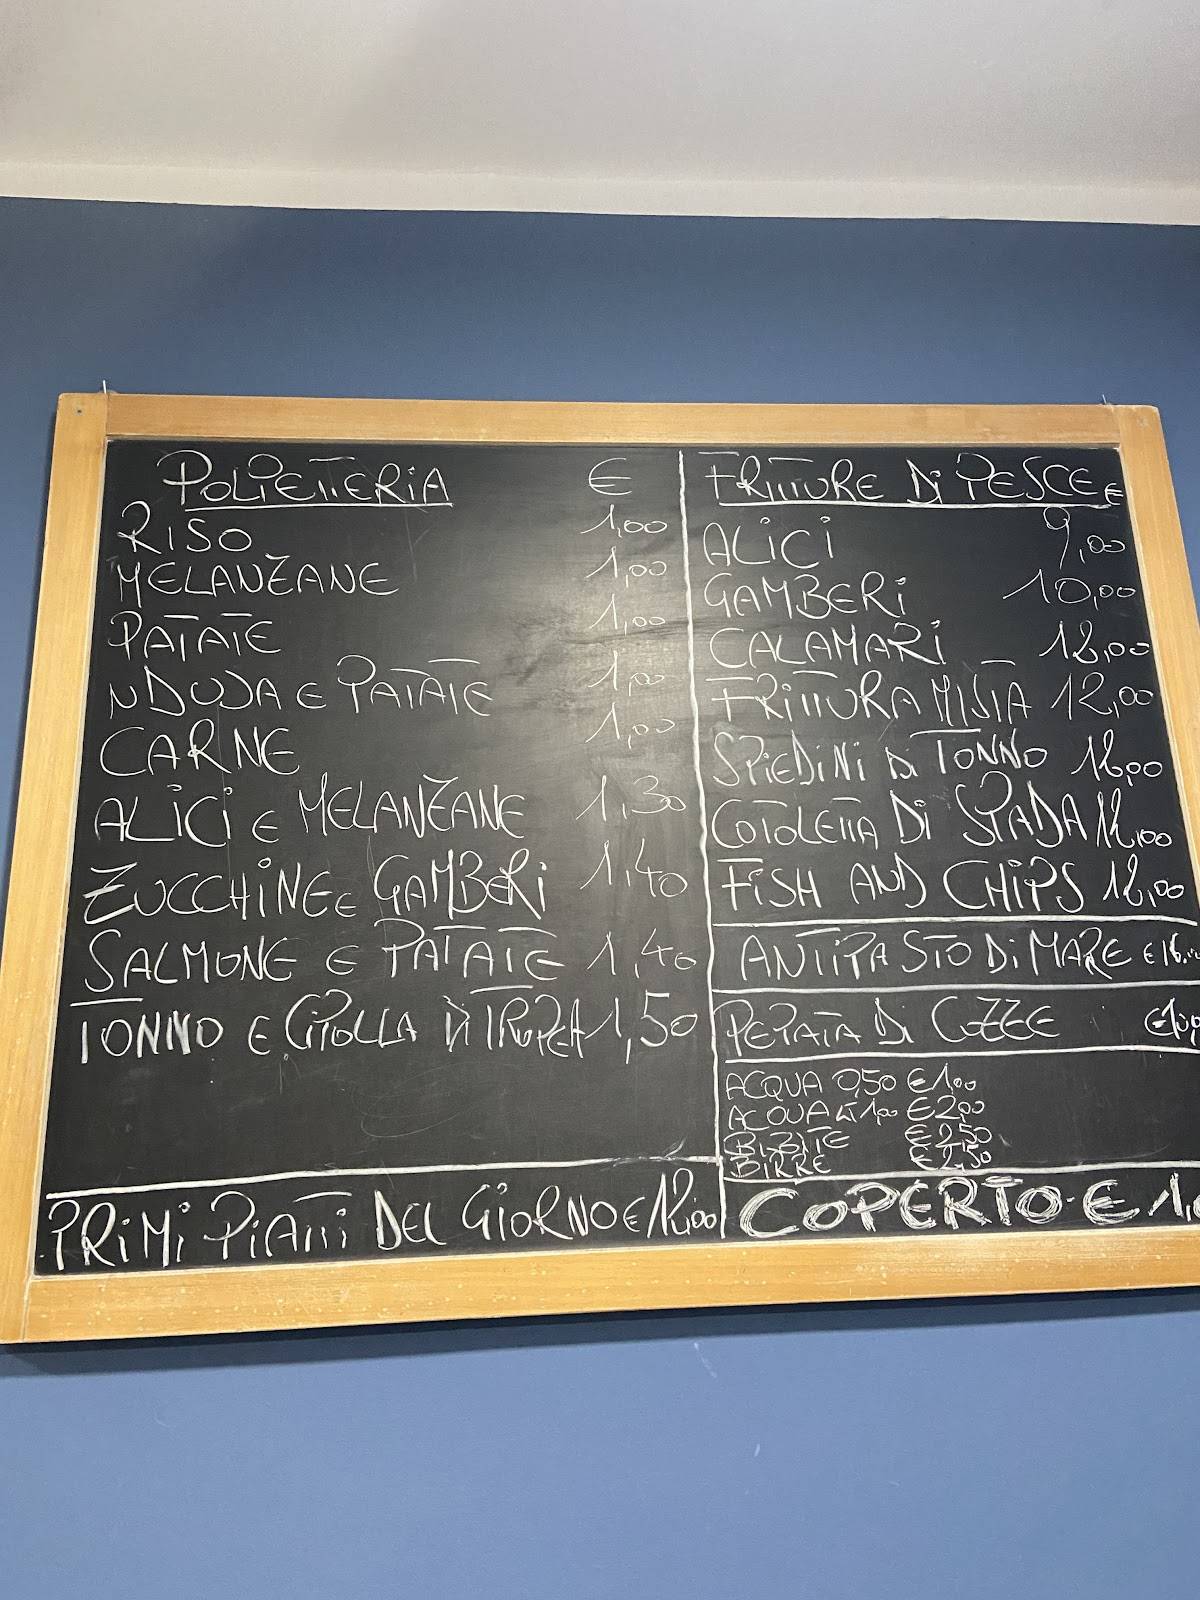 POLPETTERIA €
RISO 1,00
MELANZANE 1,00
PATATE 1,00
NDUJA E PATATE 1,00
CARNE 1,00
ALICI E MELANZANE 1,30
ZUCCHINE E GAMBERI 1,40
SALMONE E PATATE 1,40
TONNO E CIPOLLA DI TROPEA 1,50
PRIMI PIATTI DEL GIORNO € 12,00
FRITTURE DI PESCE €
ALICI 9,00
GAMBERI 10,00
CALAMARI
FRITTURA MISTA 12,00
SPIEDINI DI TONNO
COTOLETTA DI SPADA
FISH AND CHIPS
ANTIPASTO DI MARE €
PEPATA DI COZZE €
ACQUA 0,50 €1,00
ACQUA LT 1,00 €2,00
BIBITE €2,50
BIRRE €2,50
COPERTO €